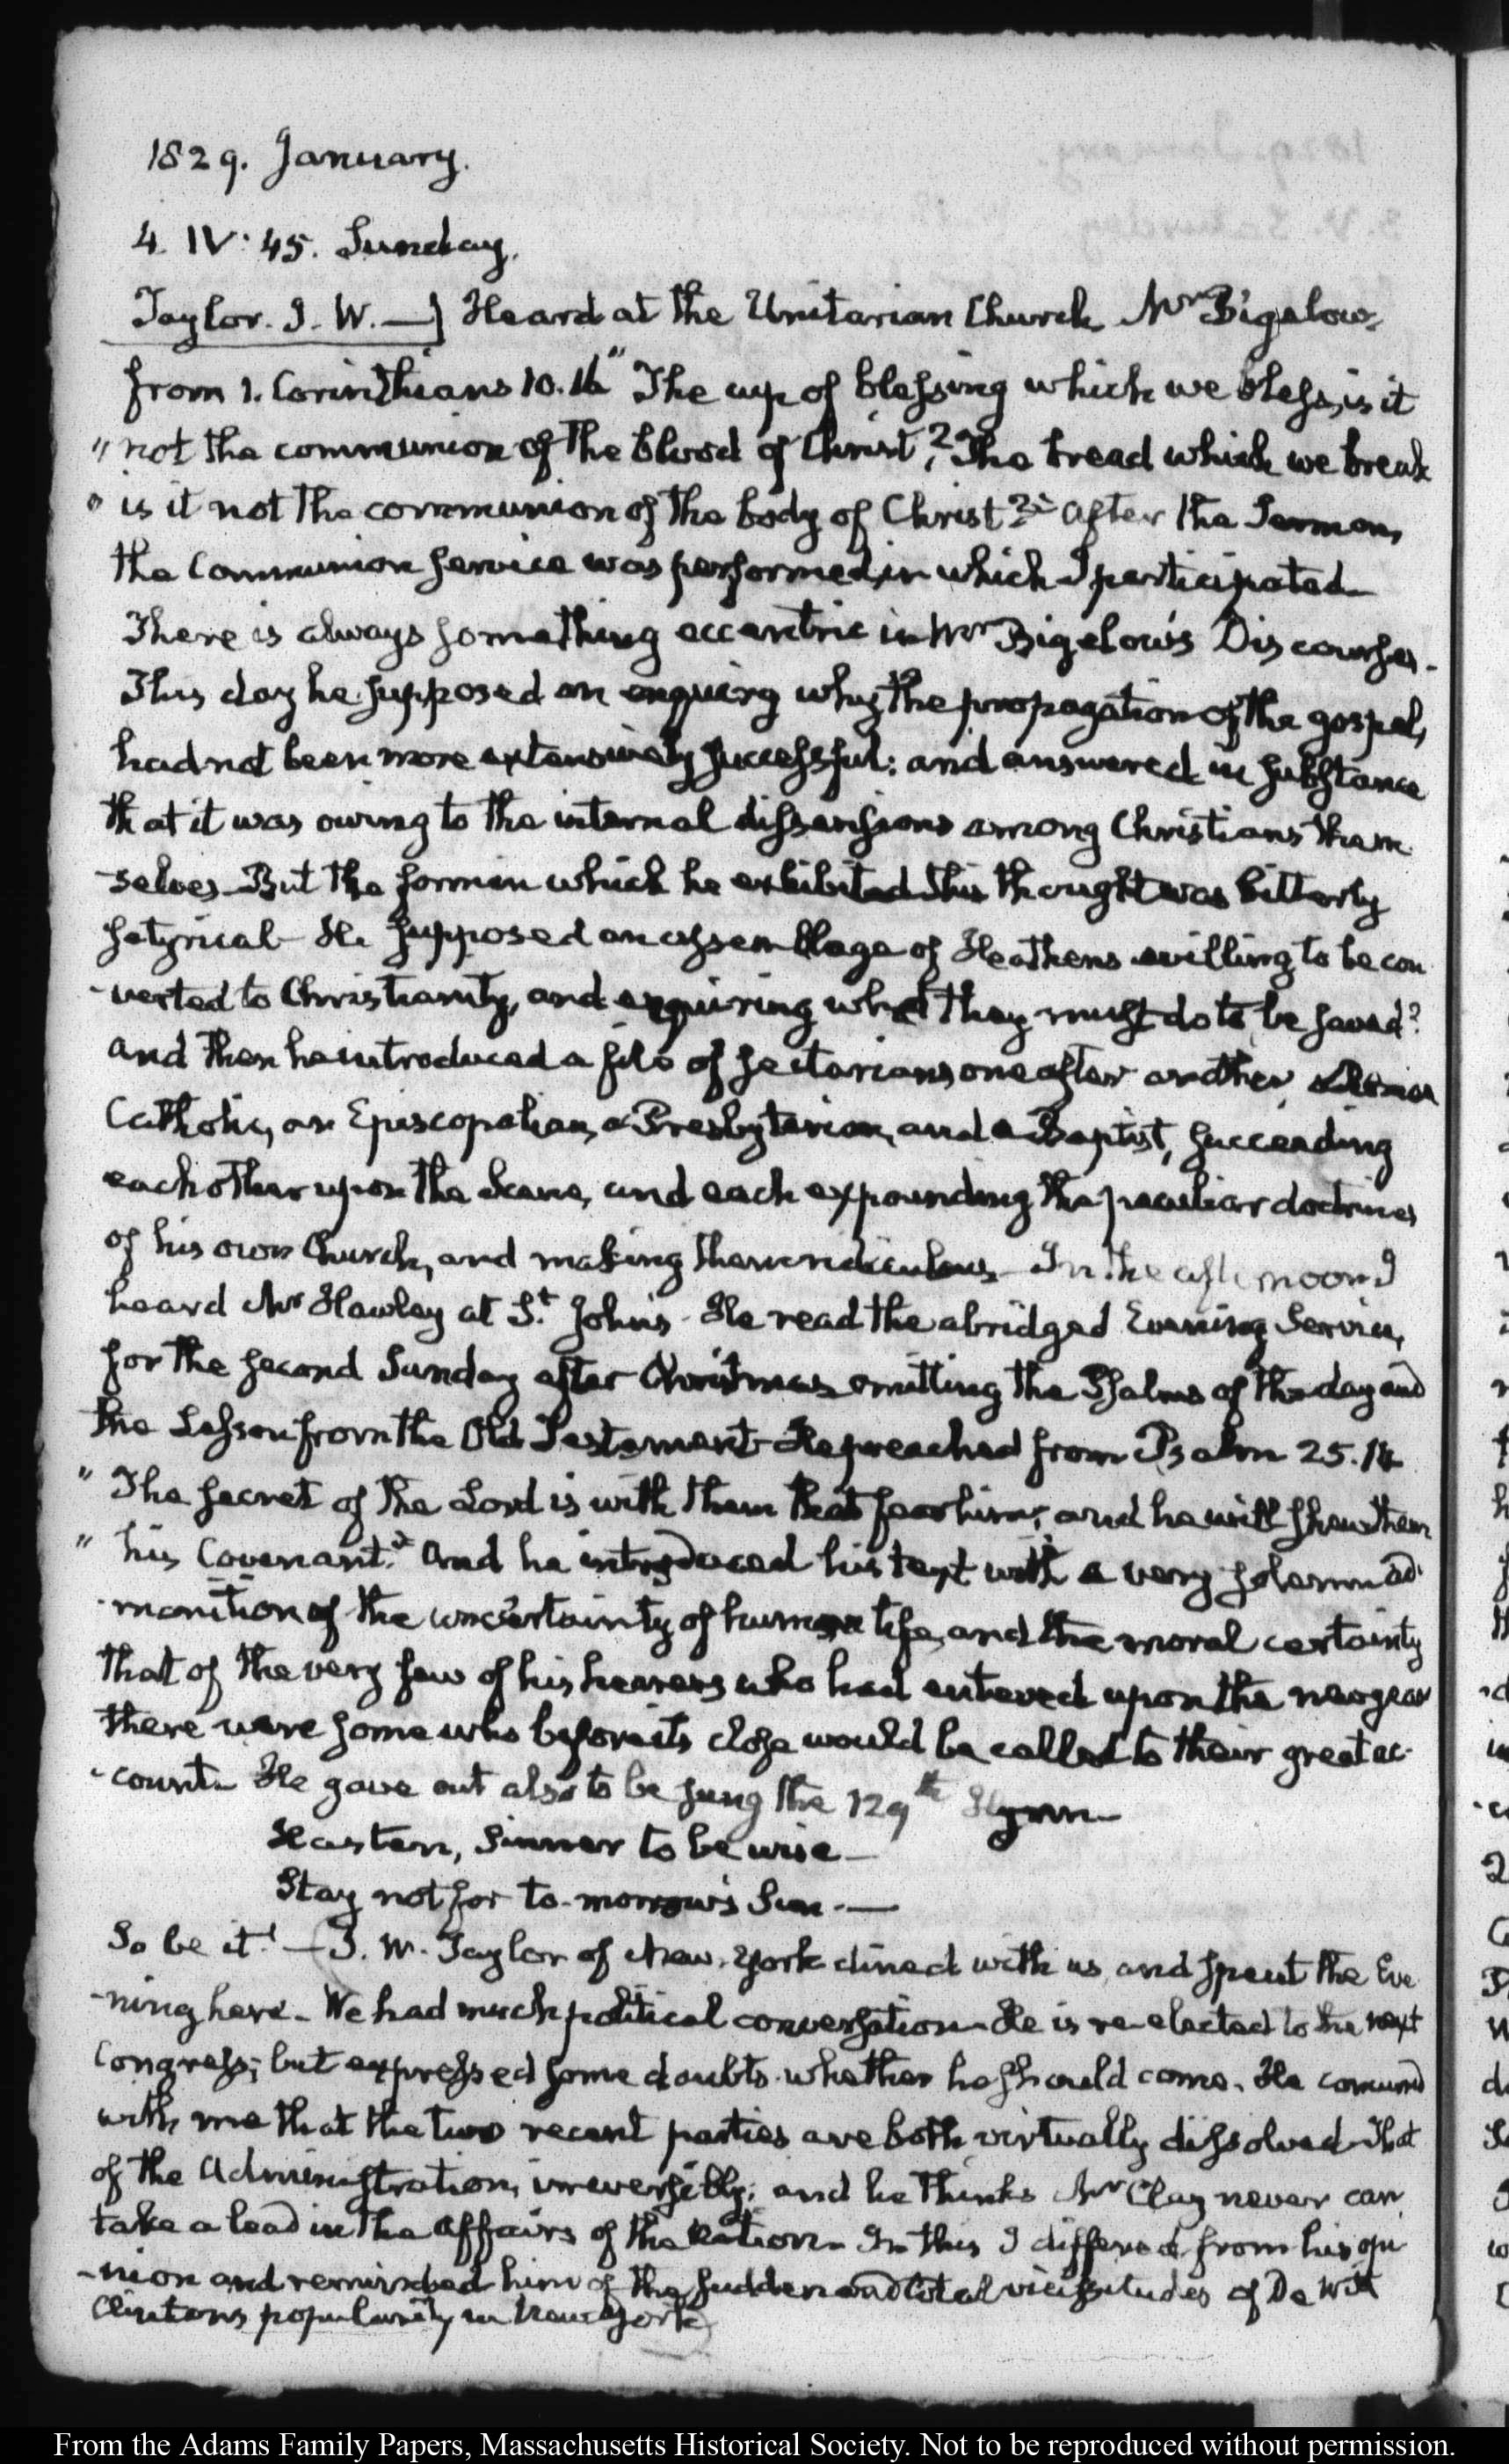 1829. January.
4. IV: 45. Sunday.
Taylor. J. W. —] Heard at the Unitarian Church Mr Bigelow,
from 1. Corinthians 10.16 "The cup of blessing which we bless, is it
" not the communion of the blood of Christ? The bread which we break
" is it not the communion of the body of Christ?" After the Sermon,
the Communion service was performed, in which I participated—
There is always something eccentric in Mr Bigelow's Discourses—
This day he supposed an enquiry why the propagation of the gospel,
had not been more extensively successful: and answered in substance
that it was owing to the internal dissensions among Christians them
-selves—But the form in which he exhibited this thought was bitterly
satyrical—He supposed an assemblage of Heathens willing to be con
-verted to Christianity, and enquiring what they must do to be saved?
and then he introduced a file of sectarians, one after another, a Roman
Catholic, an Episcopalian, a Presbyterian, and a Baptist, succeeding
each other upon the Scene, and each expounding the peculiar doctrines
of his own Church, and making them ridiculous—In the afternoon I
heard Mr Hawley at St. John's—He read the abridged Evening Service,
for the second Sunday after Christmas omitting the Psalms of the day and
the Lesson from the Old Testament—He preached from Psalm 25.14
" The secret of the Lord is with them that fear him; and he will shew them
" his Covenant." And he introduced his text with a very solemn ad
-monition of the uncertainty of human life, and the moral certainty
that of the very few of his hearers who had entered upon the new year
there were some who before its close would be called to their great ac-
-count—He gave out also to be sung the 129th Hymn—
Hasten, Sinner to be wise—
Stay not for to-morrow's Sun.—
So be it!—J. W. Taylor of New-York dined with us, and spent the Eve
-ning here—We had much political conversation—He is re-elected to the next
Congress; but expressed some doubts whether he should come. He concurred
with me that the two recent parties are both virtually dissolved—That
of the Administration, irreversibly; and he thinks Mr Clay never can
take a lead in the affairs of the Nation—In this I differed from his opi
-nion and reminded him of the sudden and total vicissitudes of De Witt
Clinton's popularity in New York
From the Adams Family Papers, Massachusetts Historical Society. Not to be reproduced without permission.